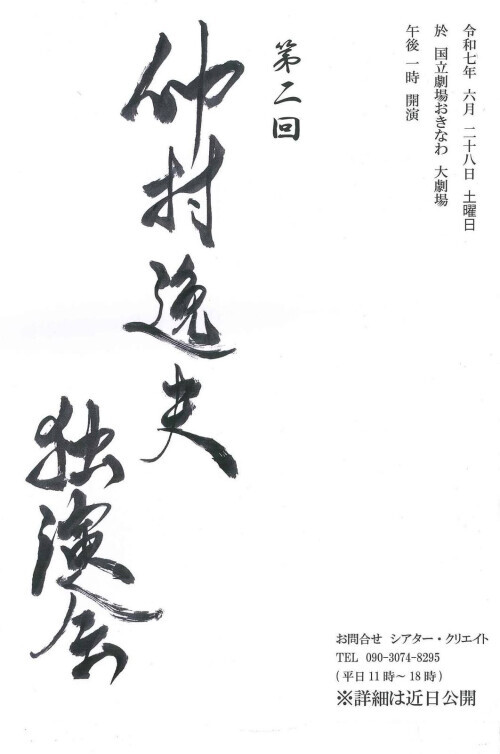 令和七年 六月 二十八日 土曜日
於 国立劇場おきなわ 大劇場
午後 一時 開演
第二回
仲村逸夫
独演会
お問合せ シアター・クリエイト
TEL 090-3074-8295
(平日11時～18時)
※詳細は近日公開